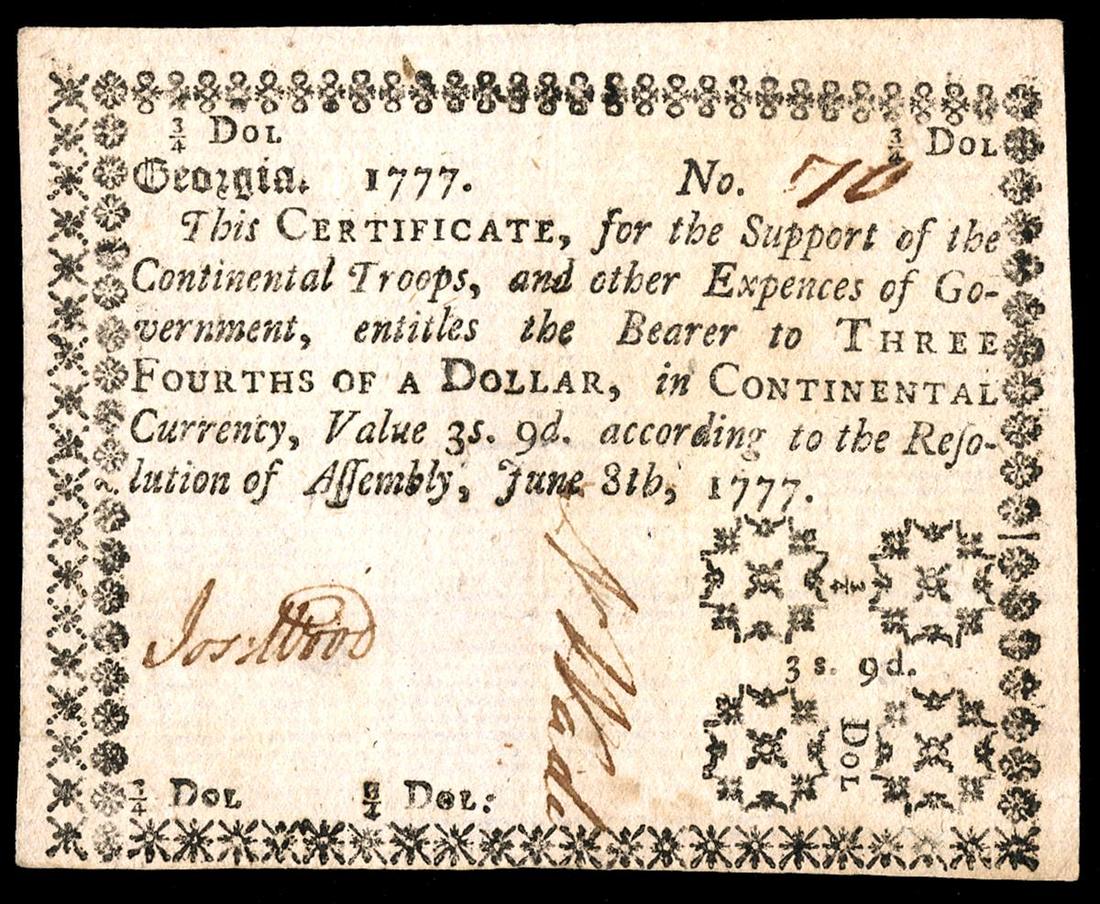 ¾ Dol ¾ Dol
Georgia. 1777. No. 710
This CERTIFICATE, for the Support of the
Continental Troops, and other Expences of Go-
vernment, entitles the Bearer to THREE
FOURTHS OF A DOLLAR, in CONTINENTAL
Currency, Value 3s. 9d. according to the Reſo-
lution of Aſſembly, June 8th, 1777.
Jos: Wood
N Wade
¾
3s. 9d.
DOL
¾ Dol ¾ Dol: